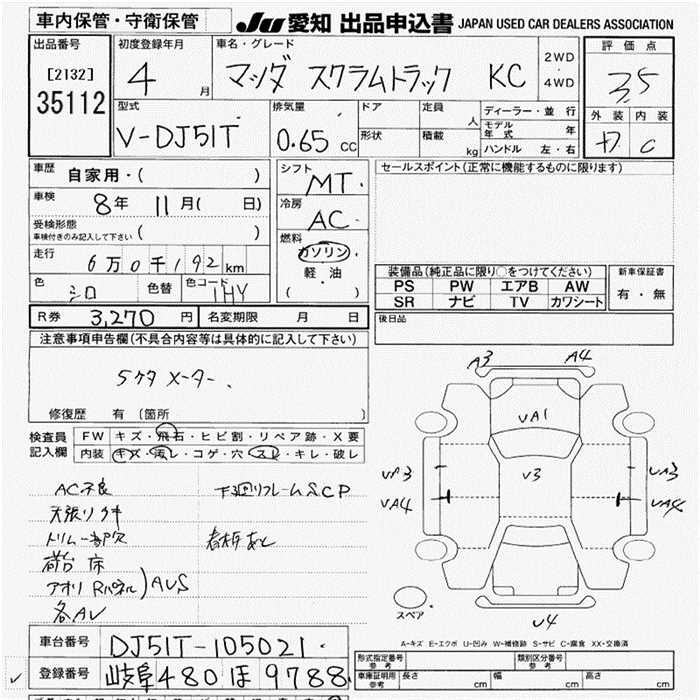 車内保管・守衛保管
JU 愛知 出品申込書 JAPAN USED CAR DEALERS ASSOCIATION
出品番号
[2132]
35112
初度登録年月
4 月
車名・グレード
マツダ スクラムトラック KC
2WD
4WD
評価点
3.5
外装 内装
C
型式
V-DJ51T
排気量
0.65 CC
ドア
形状
定員
人
積載
kg
ディーラー・並行
モデル年式 年
ハンドル 左・右
車歴 自家用・( )
車検 8年 11月( 日)
受検形態
車検付きのみ記入して下さい ( )
走行 6万0千192km
色 シロ 色替 色コード 1HY
シフト
MT
冷房
AC
燃料
ガソリン
軽・油
( )
セールスポイント(正常に機能するものに限ります)
装備品(純正品に限り○をつけてください)
PS PW エアB AW
SR ナビ TV カワシート
新車保証書
有・無
R券 3,270 円 名変期限 月 日
後日品
注意事項申告欄(不具合内容等は具体的に記入して下さい)
5ケタメーター.
修復歴 有 (箇所 )
検査員記入欄
FW キズ・飛石・ヒビ割・リペア跡・X要
内装 キズ・汚レ・コゲ・穴・スレ・キレ・破レ
AC不良
下廻リフレームSCP
天張リ
トリム一部穴
荷台床
アオリRパネル)AUS
各AU
A3 A4
UA1
U3
UA3
UA4
UA3
UA4
U4
スペア
A-キズ E-エクボ U-凹み W-補修跡 S-サビ C-腐食 XX-交換済
車台番号 DJ51T-105021
登録番号 岐阜480ほ9788
形式指定番号
参考
類別区分番号
参考
車庫証明用
参考
長さ cm 幅 cm 高さ cm